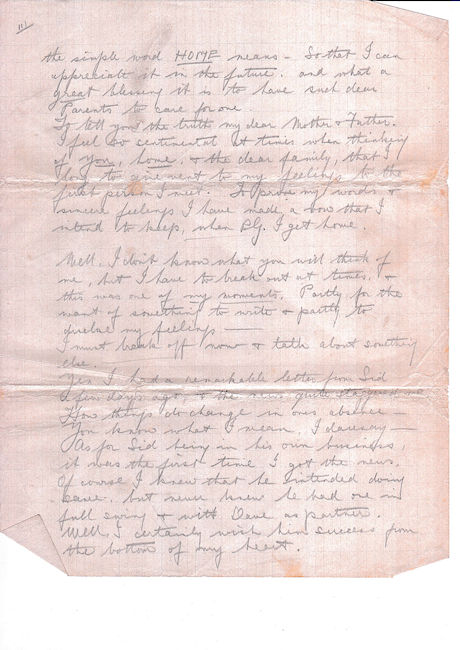 111
the simple word HOME means - So that I can
appreciate it in the future. and what a
great blessing it is to have such dear
Parents to care for one.
To tell you the truth my dear Mother & Father.
I feel so sentimental at times when thinking
of you, home, & the dear family, that I
long to give vent to my feelings to the
first person I meet. To prove my words &
sincere feelings I have made a vow that I
intend to keep, when P.G. I get home.
Well, I don't know what you will think of
me, but I have to break out at times, &
this was one of my moments, Partly for the
want of something to write & partly to
my feelings —
I must break off now & talk about something
else.
Yes I had a remarkable letter from Sid
a few days ago, & the news quite staggered me
How things do change in ones absence —
You know what I mean, I daresay —
As for Sid being in his own business,
it was the first time I got the news,
Of course I knew that he intended doing
same, but never knew he had one in
full swing & with Dave as partner.
Well, I certainly wish him success from
the bottom of my heart.